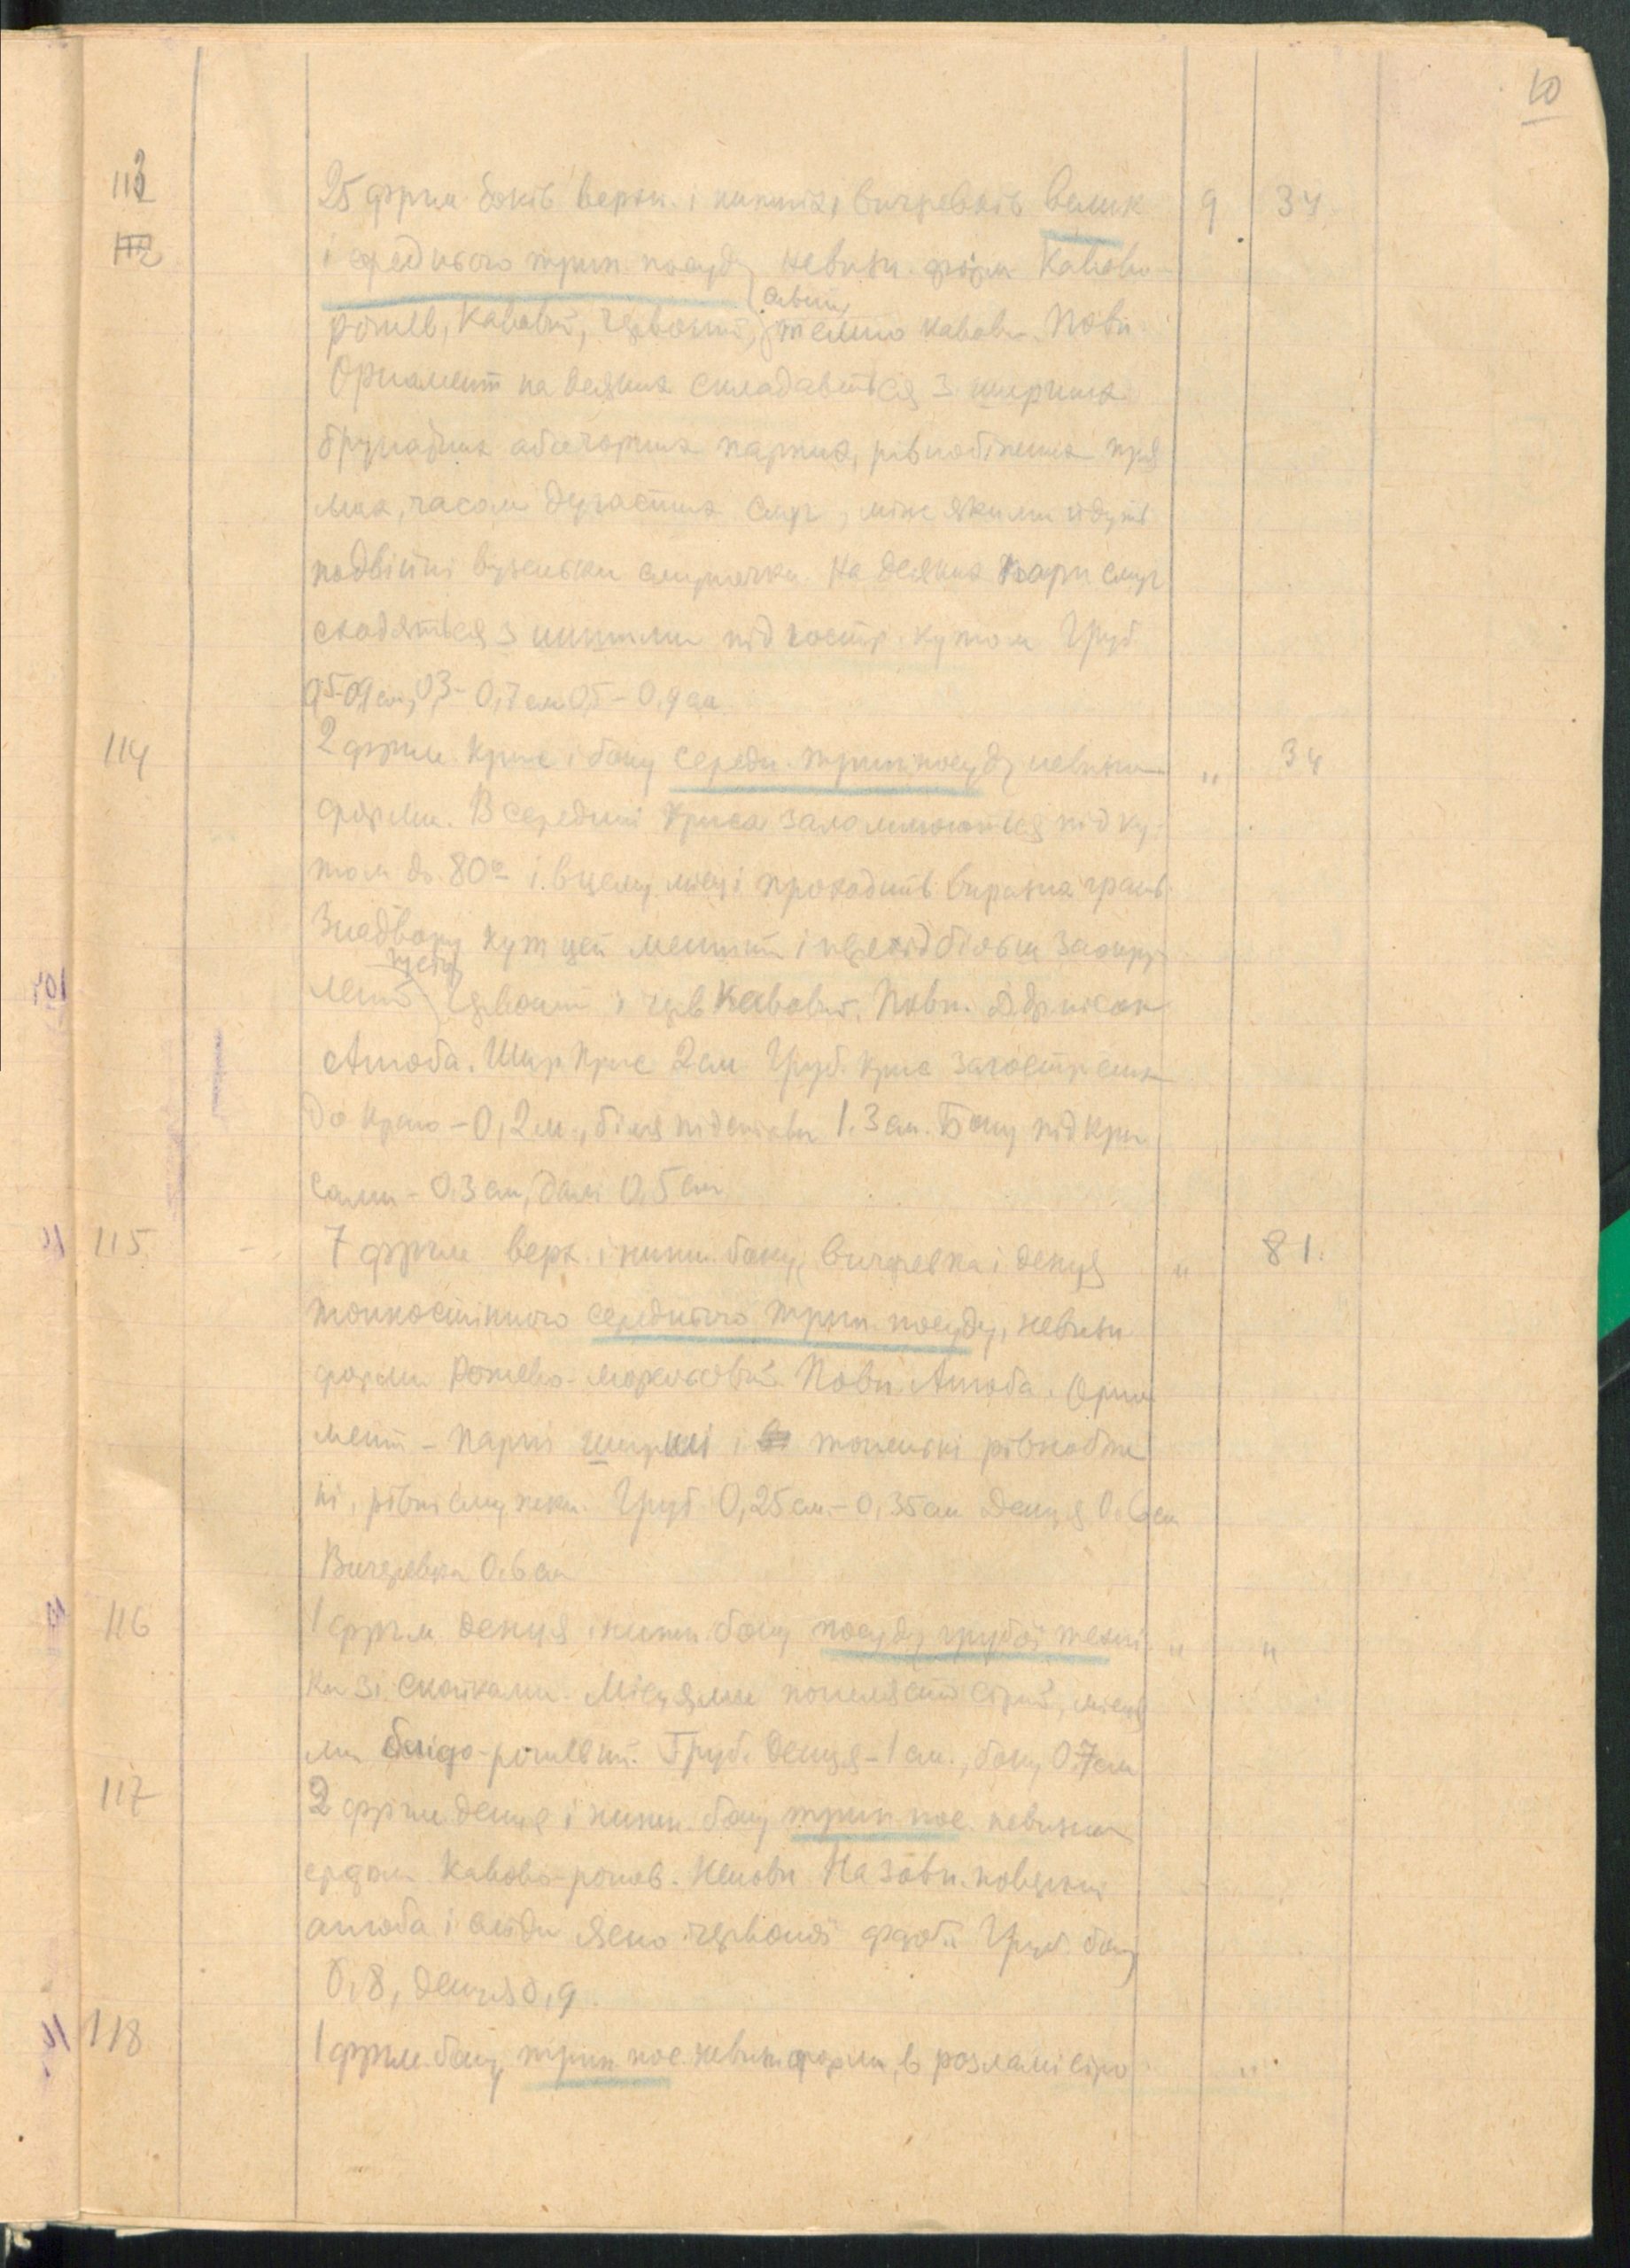 10
113 25 фрагм. боків верхн. і нижніх, вичеревків велик. 9 34.
112 і середнього трип. посуду невизн. форм Кавово-
світл.
рожев, Кавовий, Червоний, темно кавов. Повн.
Орнамент на деяких складається з ширших
брунатних або чорних парних, рівнобіжних пря
мих, часом дугастих смуг, між якими йдуть
подвійні вузенькі смужечки. На деяких пари смуг
сходяться з иншими під гостр. кутом Груб.
0,5-0,9 см, 0,3-0,7 см 0,5-0,9 см
114 2 фрагм. крис і боку середн. трип. посуду невизн. „ 34
форми. В середині криса заломлюються під ку-
том до 80° і в цьому місці проходить виразна грань.
Знадвору кут цей менший і перехід більш заокру-
лений Червоний і черв кавовий. Повн. Др. пісок
Ангоба. Шир крис 2 см. Груб. крис загострених
до краю - 0,2 м, біля підстави 1.3 см. Боку під кри
сами - 0.3 см, далі 0,5 см
115 7 фрагм. верх. і нижн. боку, вичеревка і денця „ 81.
тонкостінного середнього трип. посуду, невизн
форми Рожево-морквовий. Повн. Ангоба. Орна
мент - парні ширші і тоненькі рівнобіж
ні, рівні смужки. Груб 0,25 см - 0,35 см Денця 0.6 см
Вичеревка 0.6 см
116 1 фрагм. денця і нижн. боку посуду грубої техні- „ „
ки зі скойками. Місцями попелястий сірий, місця
ми блідо-рожевий. Груб. денця - 1 см., боку 0.7 см
117 2 фрагм. денця і нижн. боку трип. пос. невизн
форм. Кавово-рожев. Неповн. На зовн. поверхні
ангоба і сліди ясно червоної фарби Груб. боку
0,8, денця 0,9
118 1 фрагм. боку трип. пос. невизн форми, в розламі сіро „